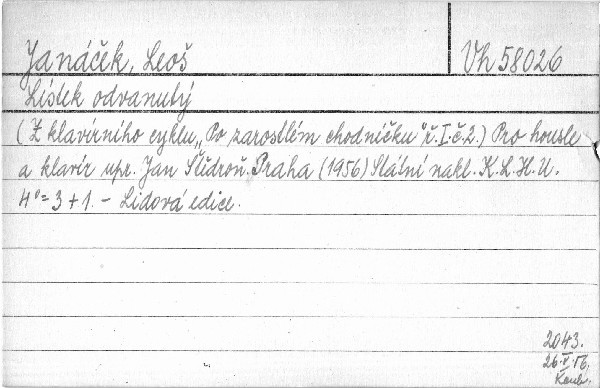 Janáček, Leoš
Vh 58026
Lístek odvanutý
(Z klavírního cyklu „Po zarostlém chodníčku" ř. I. č. 2.) Pro housle
a klavír upr. Jan Štědroň. Praha (1956) Státní nakl. K. L. H. U.
4° = 3 + 1. - Lidová edice.
2043.
26. V. 56.